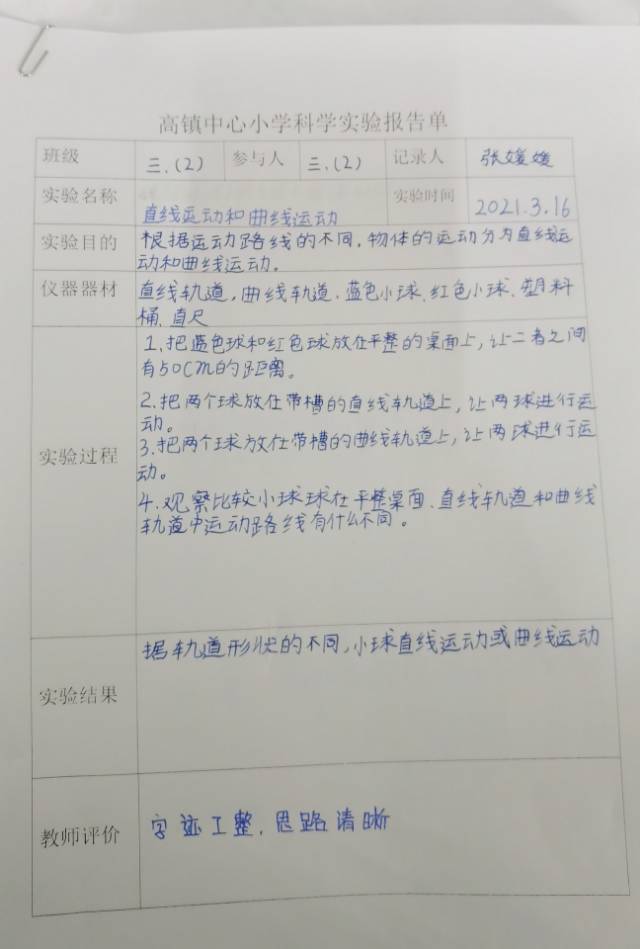 高镇中心小学科学实验报告单
班级 三.(2) 参与人 三.(2) 记录人 张媛媛
实验名称 直线运动和曲线运动 实验时间 2021.3.16
实验目的 根据运动路线的不同,物体的运动分为直线运
动和曲线运动。
仪器器材 直线轨道,曲线轨道.蓝色小球、红色小球、塑料
桶、直尺
实验过程
1、把蓝色球和红色球放在平整的桌面上,让二者之间
有50CM的距离。
2、把两个球放在带槽的直线轨道上,让两球进行运
动。
3、把两个球放在带槽的曲线轨道上,让两球进行运
动。
4、观察比较小球球在平整桌面、直线轨道和曲线
轨道中运动路线有什么不同。
实验结果
据轨道形状的不同,小球直线运动或曲线运动
教师评价 字迹工整、思路清晰